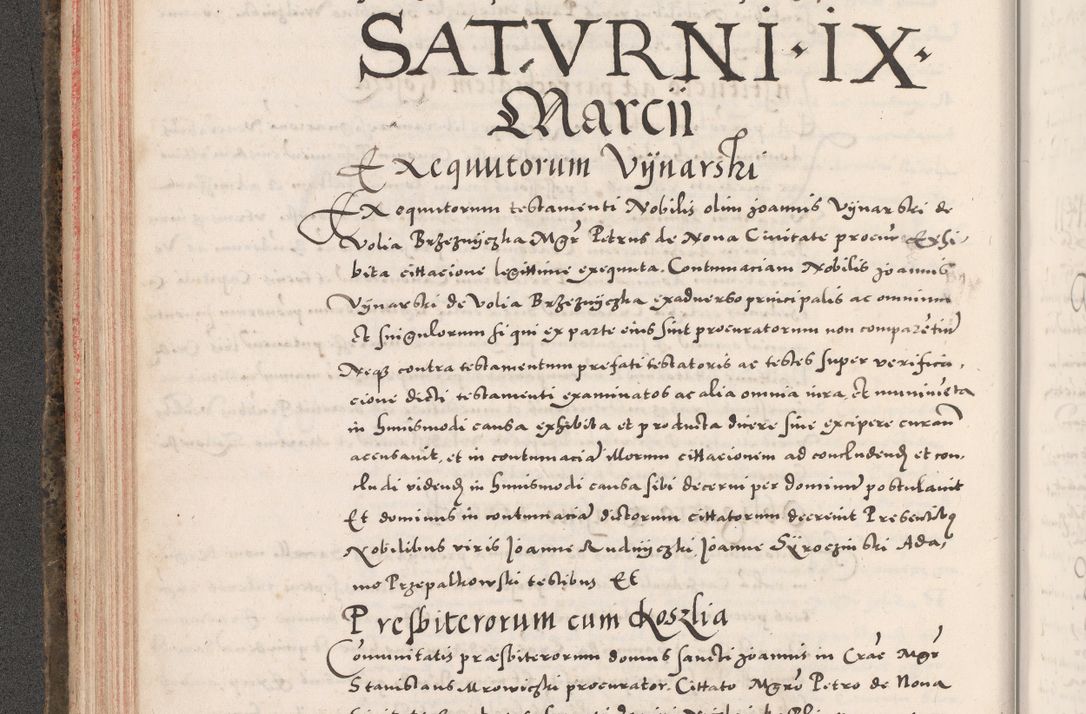 SATVRNI · IX ·
Marcii
Exequutorum Vÿnarski
Exequutorum testamenti Nobilis olim Joannis Vÿnarski de
Volia Brzeznÿczka Mgr Petrus de Nova Civitate procur Exhi-
bita cittacione legittime exequuta. Contumaciam Nobilis Joannis
Vÿnarski de Volia Brzeznÿczka exadverso principalis ac omnium
et singulorum si qui ex parte eius sint procuratorum non comparentium
Neque contra testamentum prefati testatoris ac testes super verifica-
cione dicti testamenti examinatos ac alia omnia iura et munimenta
in huiusmodi causa exhibita et producta dicere sive excipere curan
accusavit, et in contumaciam illorum cittacionem ad concludend et con-
cludi vidend in huiusmodi causa sibi decerni per dominum postulavit
Et dominus in contumaciam dictorum cittatorum decrevit Presentibus
Nobilibus viris Joanne Rudnÿczki Joanne Sÿroczinski Ada-
mo Przepalkowski testibus Et
Presbiterorum cum Koszlia
Comunitatis præsbiterorum domus sancti Joannis in Crac Mgr
Stanislaus Mrowiczki procurator. Cittato Mgro Petro de Nova